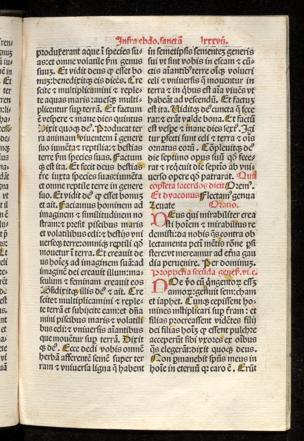 Infra ebdo. sanctā lxxxvii.
produxerant aque ī species su-
as: et omne volatile scḋm genus
suuȝ. Et vidit deus qȝ esset bo-
nuȝ: benedixitqȝ eis dicēs. Cre
scite et multiplicamini et reple-
te aquas maris: aueſqȝ multi-
plicentur sup terrā. Et factum
ē vespere et mane dies quintus
Dixit quoqȝ deꝰ. Producat ter-
ra animam viuentem ī genere
suo iumēta et reptilia: et bestias
terre scḋm species suas. Factum
qȝ est ita. Et fecit deus bestias
terre iuxta species suas: iumēta
et omne reptile terre in genere
suo. Et vidit deꝰ qȝ esset bonuȝ
et ait. Faciamus hominem ad
imaginem et similitudinem no
stram: et presit piscibus maris
et volatilibus celi: et bestijs vni
uerseqȝ terre: omniqȝ reptili qḋ
mouetur ī terra. Et creauit de
us hoīeȝ ad imaginem suā: ad
imaginē dei creauit illum: ma-
sculum et feminam creauit eos
Benedixitqȝ illis deꝰ et ait. Cre
scite et multiplicamini et reple-
te terrā et subijcite eam: et dṅa
mini piscibus maris et volatili-
bus celi: et vniuersis aīantibus
que mouētur sup terrā. Dixit
qȝ deꝰ. Ecce dedi vobis omnē
herbā afferentē semē super ter
ram et vniuersa ligna q̄ habent
in semetipsis sementeȝ generis
sui vt sint vobis in escam et cū-
ctis aīantibꝰ terre oīqȝ volucri
celi et vniuersis q̄ mouentur in
terra et in qͥbus est aīa viuēs vt
habeāt ad vescendū. Et factuȝ
est ita. Viditqȝ deꝰ cuncta q̄ fece
rat: et erāt valde bona. Et factū
est vespe et mane dies sextꝰ. Igi
tur pfecti sunt celi et terra et oīs
ornatus eoȝ. Cōpleuitqȝ deꝰ
die septimo opus suū qḋ fece-
rat: et requieuit die septīo ab vni
uerso opere qḋ patrarat.
cōpleta sacerdos dicit Oremꝰ.
Et dyaconus Flectamꝰ genua
Leuate Oratio.
DEus qui mirabiliter crea
sti hoīem et mirabiliꝰ re
demisti: da nobis q̄s contra ob
lectamenta pctī mētis rōne psi
stere: vt mereamur ad eterna gau
dia peruenire. Per dominuȝ.
Prophetia secūda
NOe vo cū qͥngentoȝ esset
annoȝ: genuit sem chaȝ
et iaphet. Cumqȝ cepissent ho-
mines multiplicari sup trām: et
filias procreassent videntes filij
dei filias hoīuȝ qȝ essent pulchre
acceperūt sibi vxores ex oībus
q̄s elegerāt: dixit quoqȝ deus.
Non pmanebit spūs meus in
hoīe in eternū qꝛ caro ē. Erūt